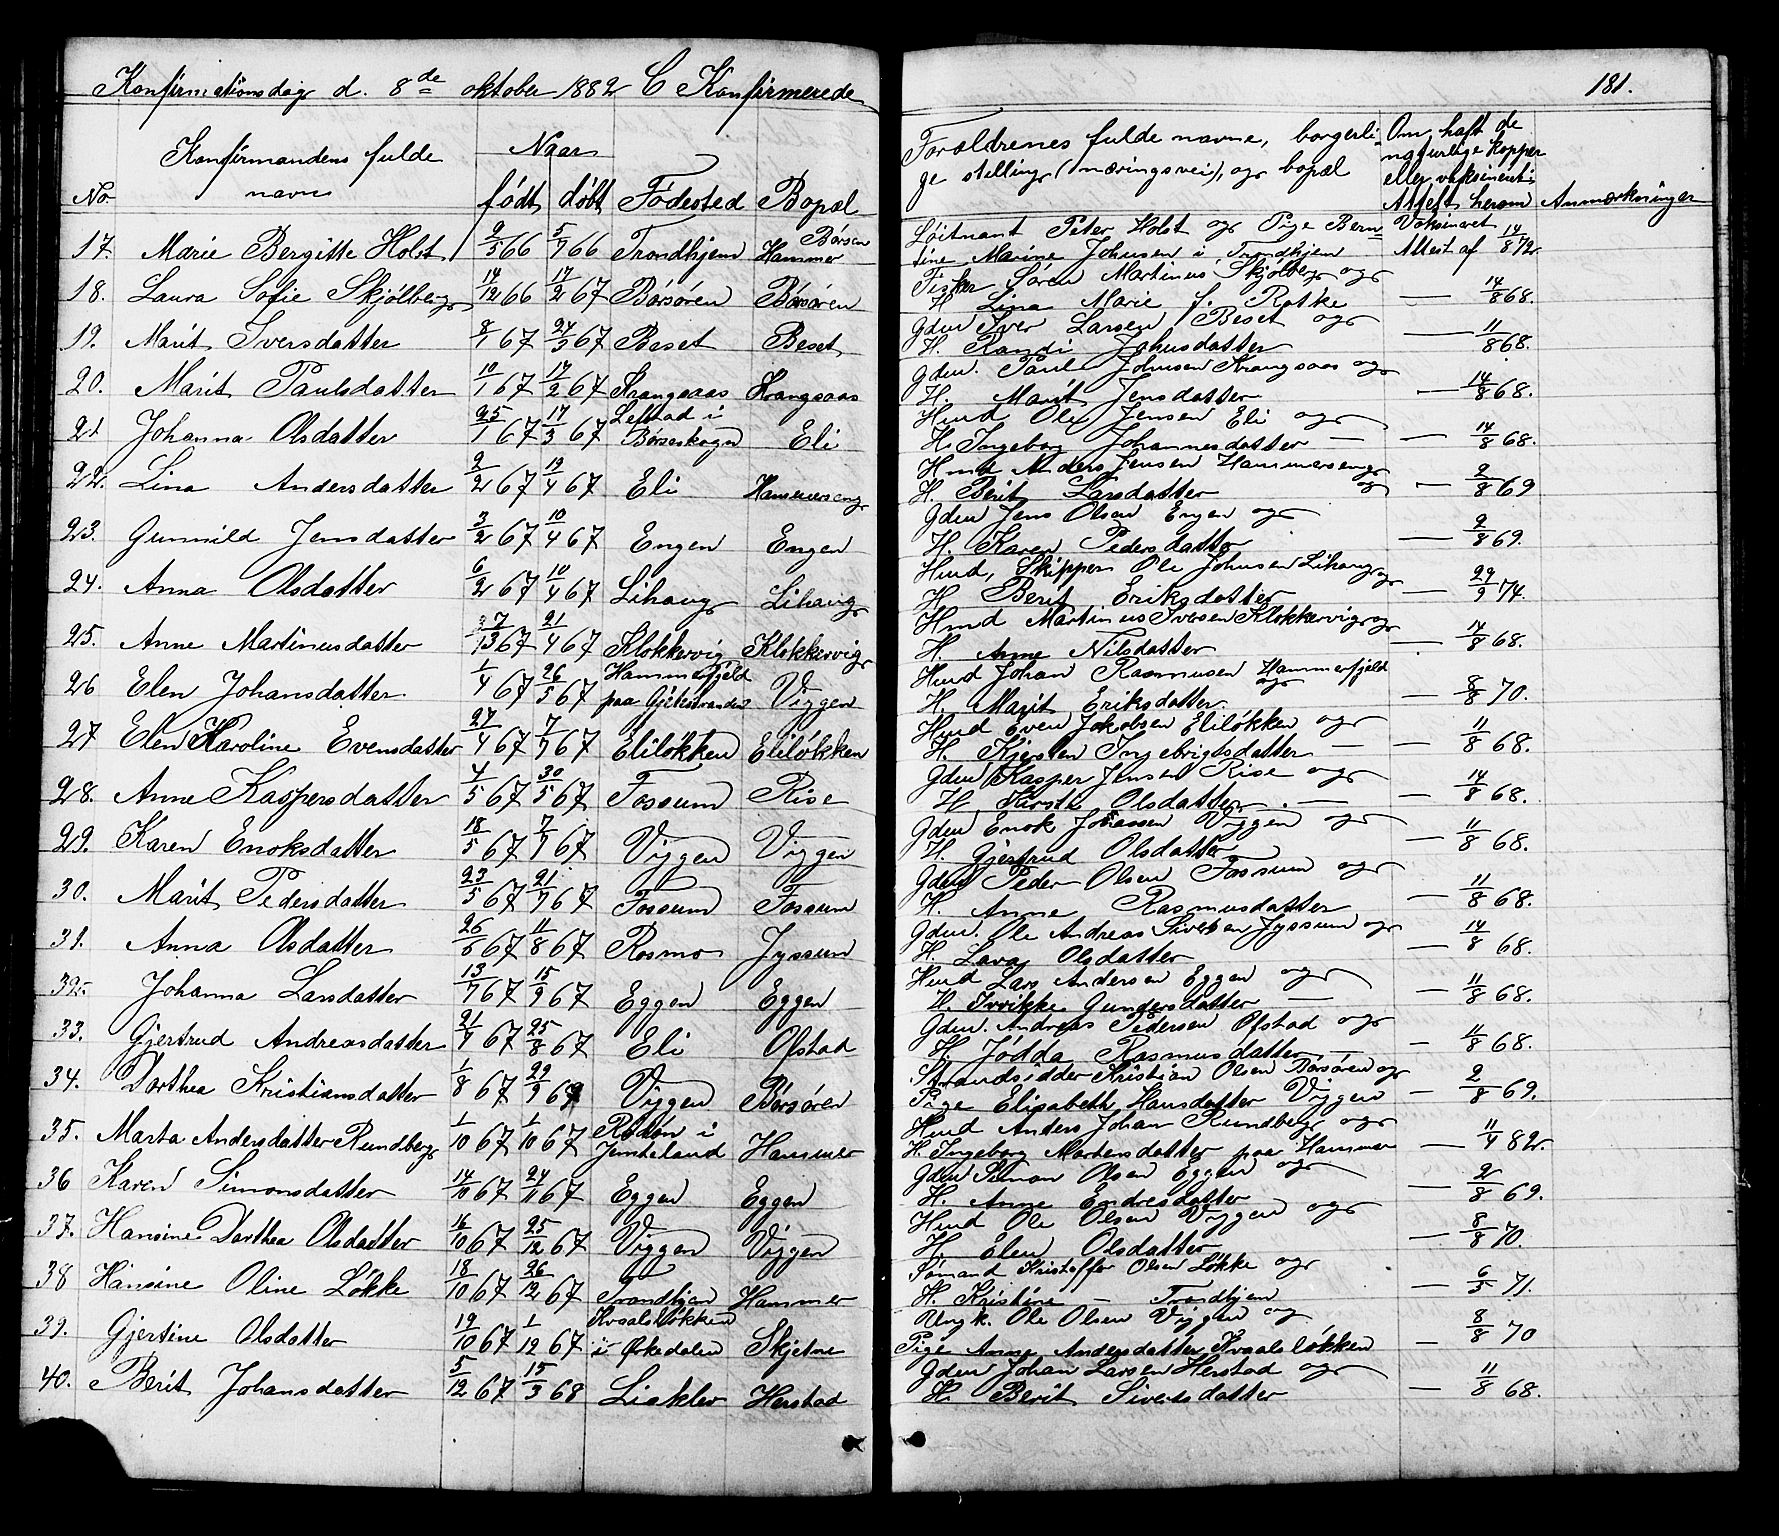 Konfirmationsdag d. 8de oktober 1882 C Konfirmerede
181.
No
Konfirmandens fulde navn
Naar
født døbt
Fødested
Bopæl
Forældrenes fulde navne, borgerli-
ge stilling (næringsvei), og bopæl
Om haft de
naturlige kopper
eller vaksineret:
Attest herom
Anmærkninger
17. Marie Bergitte Holst 2/5 66 5/7 66 Trondhjem Hammer Børsen
Løitnant Peter Holst og Pige Bern-
tine Marine Johnsen i Trondhjem
Vaksineret
Attest af 14/8 72
18. Laura Sofie Skjølberg 14/12 66 17/2 67 Børsøren Børsøren
Fisker Søren Martinus Skjølberg og
H. Lina Marie f. Rotke — 14/8 68.
19. Marit Iversdatter 8/1 67 24/3 67 Beset Beset
Gdm Iver Larsen Beset og
H. Randi Johnsdatter — 11/8 68.
20. Marit Paulsdatter 10/1 67 17/2 67 Krangsaas Krangsaas
Gdm. Paul Johnsen Krangsaas og
H. Marit Jensdatter — 14/8 68.
21 Johanna Olsdatter 25/1 67 17/3 67 Lefstad i Børseskogn Eli
Hmd Ole Jensen Eli og
H. Ingeborg Johannesdatter — — 14/8 68.
22. Lina Andersdatter 2/2 67 19/4 67 Eli Hammerseng
Hmd Anders Jensen Hammerseng og
H. Berit Larsdatter — 2/8 69
23. Gunnild Jensdatter 3/2 67 10/4 67 Engen Engen
Gdm Jens Olsen Engen og
H. Karen Pedersdatter — 2/8 69.
24. Anna Olsdatter 6/2 67 10/4 67 Lihaug Lihaug
Hmd, Skipper Ole Johnsen Lihaug og
H Berit Eriksdatter — 29/9 74.
25. Anne Martinusdatter 67 21/4 67 Klokkervig Klokkervig
Hmd Martinus Iversen Klokkervig og
H. Anne Nilsdatter — 7/8 68.
26 Elen Johansdatter 1/4 67 26/5 67 Hammerfjeld paa Gjeitstranden Viggen
Hmd Johan Rasmusen Hammerfjeld og
H. Marit Eriksdatter — 8/8 70.
27 Elen Karoline Evensdatter 27/4 67 7/7 67 Eliløkken Eliløkken
Hmd Even Jakobsen Eliløkken og
H. Kjersten Ingebrigtsdatter — — 11/8 68.
28. Anne Kaspersdatter 4/5 67 30/5 67 Fossum Rise
Gdm Kasper Jensen Rise og
H. Kirsti Olsdatter — — 14/8 68.
29. Karen Enoksdatter 18/5 67 7/7 67 Viggen Viggen
Gdm Enok Johansen Viggen og
H. Gjertrud Olsdatter — 11/8 68.
30. Marit Pedersdatter 23/5 67 21/7 67 Fossum Fossum
Gdm Peder Olsen Fossum og
H. Anne Rasmusdatter — 11/8 68.
31. Anna Olsdatter 26/6 67 11/8 67 Rosmo Jyssum
Gdm. Ole Andreas Sivesen Jyssum og
H. Lava Olsdatter — 14/8 68.
32. Johanna Larsdatter 13/7 67 15/9 67 Eggen Eggen
Hmd Lars Andersen Eggen og
H. Gundersdatter — — 11/8 68.
33. Gjertrud Andreasdatter 21/7 67 25/8 67 Eli Ofstad
Gdm. Andreas Pedersen Ofstad og
H. Jødda Rasmusdatter — 11/8 68.
34. Dorthea Kristiansdatter 1/8 67 29/9 67 Viggen Børsøren
Strandsidder Kristian Olsen Børsøren og
Pige Elisabeth Hansdatter Viggen — 2/8 69.
35. Marta Andersdatter Rundberg 1/10 67 1/10 67 Rødøn i Jemteland Hammer
Hmd Anders Johan Rundberg og
H. Ingeborg Martensdatter paa Hammer — 11/4 82.
36 Karen Simonsdatter 14/10 67 24/11 67 Eggen Eggen
Gdm Simon Olsen Eggen og
H. Anne Endresdatter — 2/8 69.
37. Hansine Dorthea Olsdatter 16/10 67 25/12 67 Viggen Viggen
Hmd Ole Olsen Viggen og
H. Elen Olsdatter — 8/8 70.
38 Hansine Oline Løkke 18/10 67 26/12 67 Trondhjem Hammer
Sømand Kristoffer Olsen Løkke og
H. Kristine — Trondhjem — 6/5 71.
39. Gjertine Olsdatter 19/10 67 1/12 67 Kvaalsløkken i Ørkedalen Skjetne
Ungk. Ole Olsen Viggen og
Pige Anne Andersdatter Kvaalsløkken — 8/8 70
40. Berit Johansdatter 5/12 67 15/3 68 Liaklev Herstad
Gdm Johan Larsen Herstad og
H. Berit Sivertsdatter — 11/8 68.